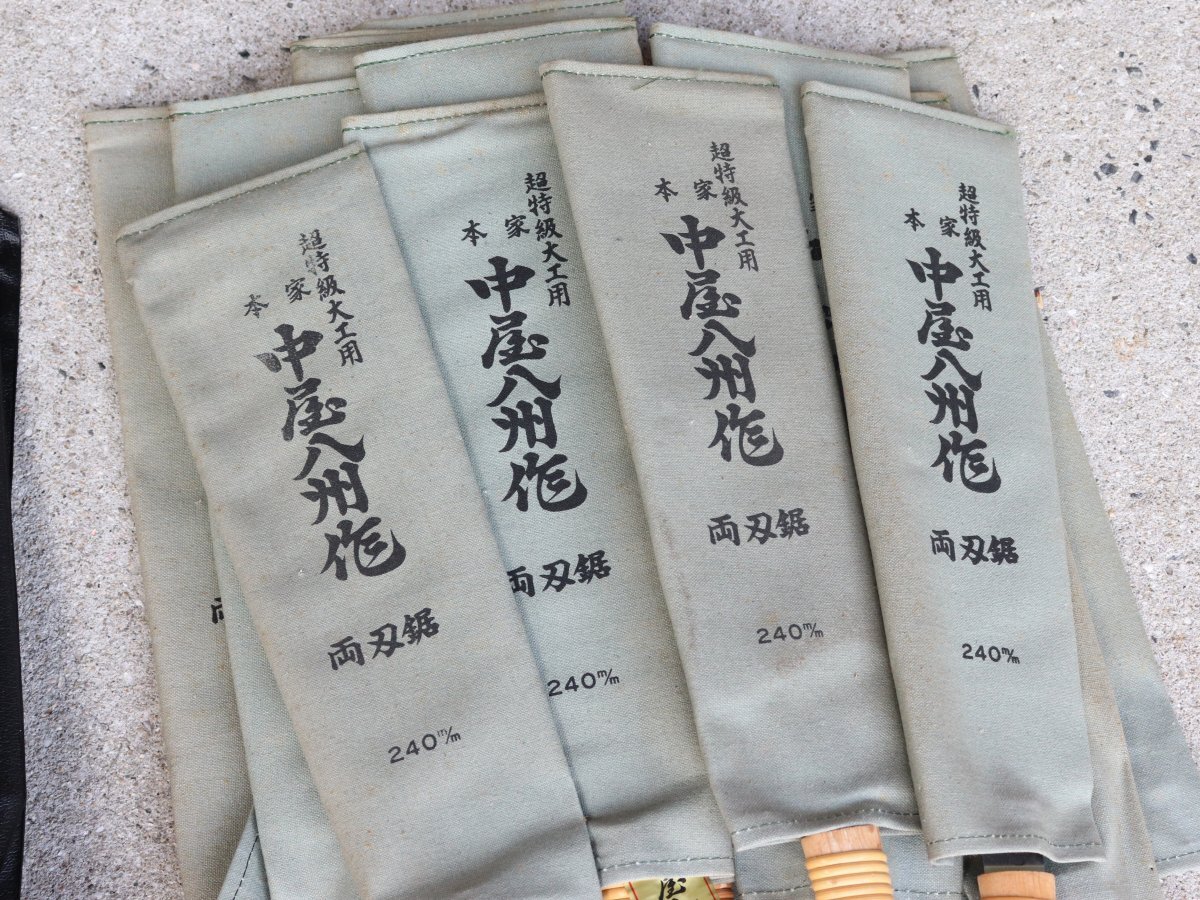 超特級大工用
本家
中屋八州作
両刃鋸
240m/m
超特級大工用
本家
中屋八州作
両刃鋸
240m/m
超特級大工用
本家
中屋八州作
両刃鋸
240m/m
超特級大工用
本家
中屋八州作
両刃鋸
240m/m
屋